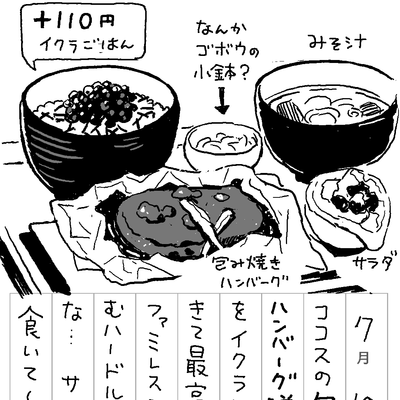 +110円
イクラごはん
なんか
ゴボウの
小鉢?
みそ汁
包み焼き
ハンバーグ
サラダ
7月
ココスの
ハンバーグ
をイクラ
きて最高
ファミレス
むハードル
な… サ
食いて〜